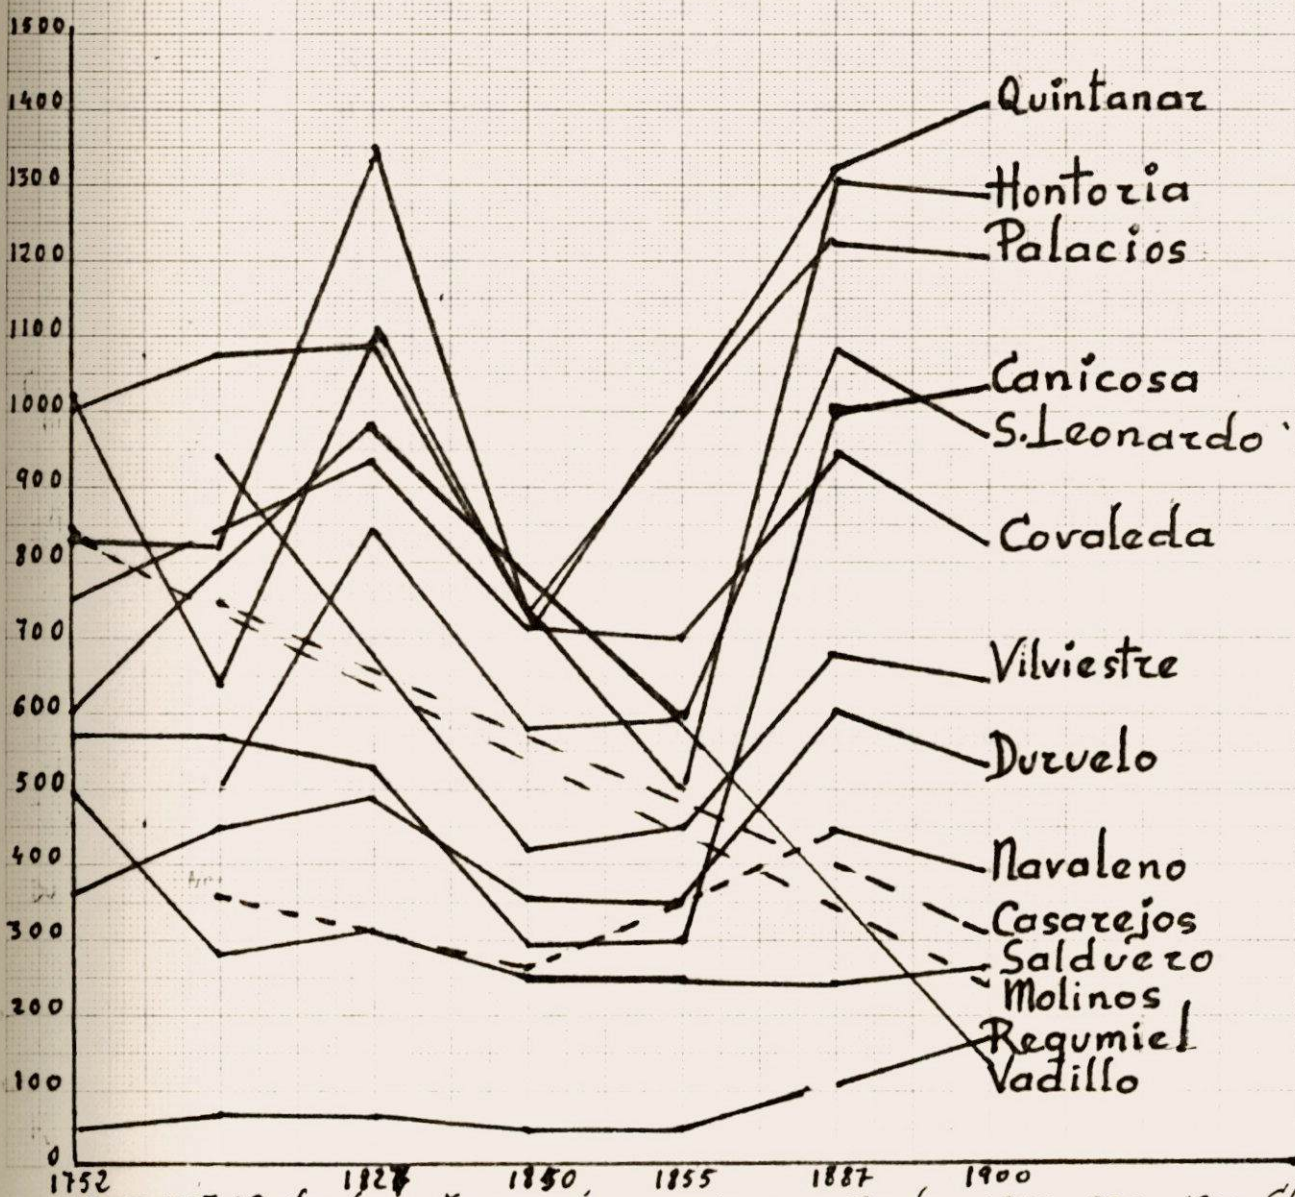 1500
1400
1300
1200
1100
1000
900
800
700
600
500
400
300
200
100
0
Quintanar
Hontoria
Palacios
Canicosa
S.Leonardo
Covaleda
Vilviestre
Duruelo
Navaleno
Casarejos
Salduero
Molinos
Regumiel
Vadillo
1752 1827 1850 1855 1887 1900